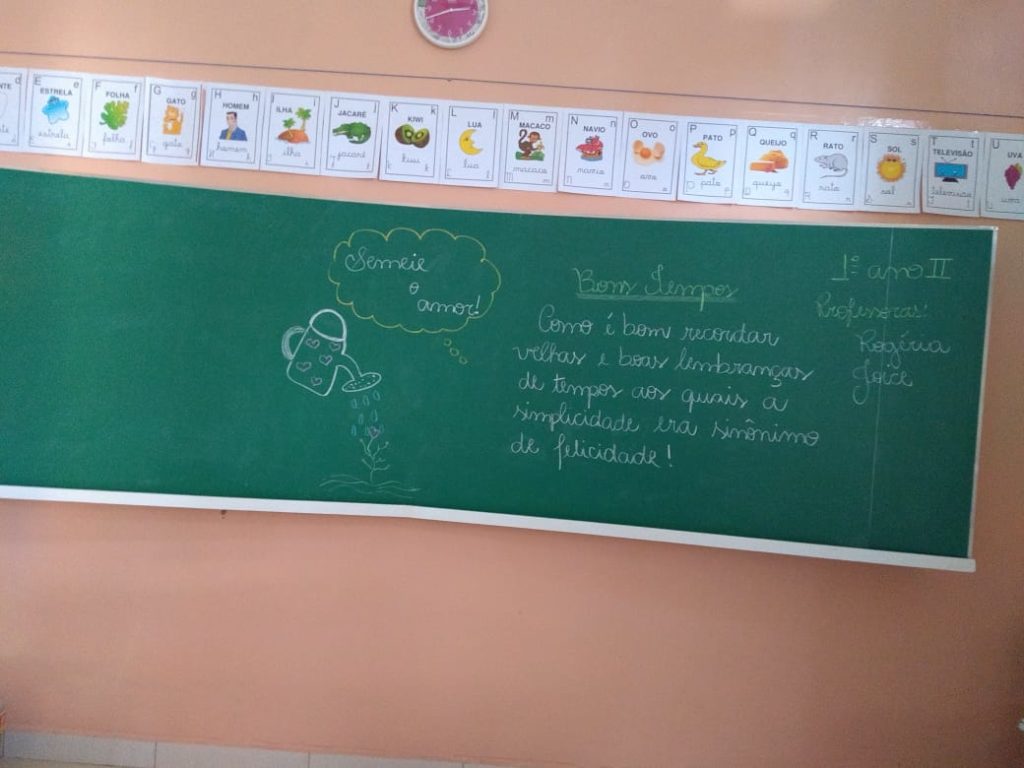 d
NTE
E e
ESTRELA
estrela
F f
FOLHA
folha
G g
GATO
gato
H h
HOMEM
homem
I i
ILHA
ilha
J j
JACARÉ
jacaré
K k
KIWI
kiwi
L l
LUA
lua
M m
MACACO
macaco
N n
NAVIO
navio
O o
OVO
ovo
P p
PATO
pato
Q q
QUEIJO
queijo
R r
RATO
rato
S s
SOL
sol
T t
TELEVISÃO
televisão
U
UVA
uva
Semeie
o
amor!
Bons Tempos
Como é bom recordar
velhas e boas lembranças
de tempos aos quais a
simplicidade era sinônimo
de felicidade!
1º ano II
Professoras:
Rogéria
Joice